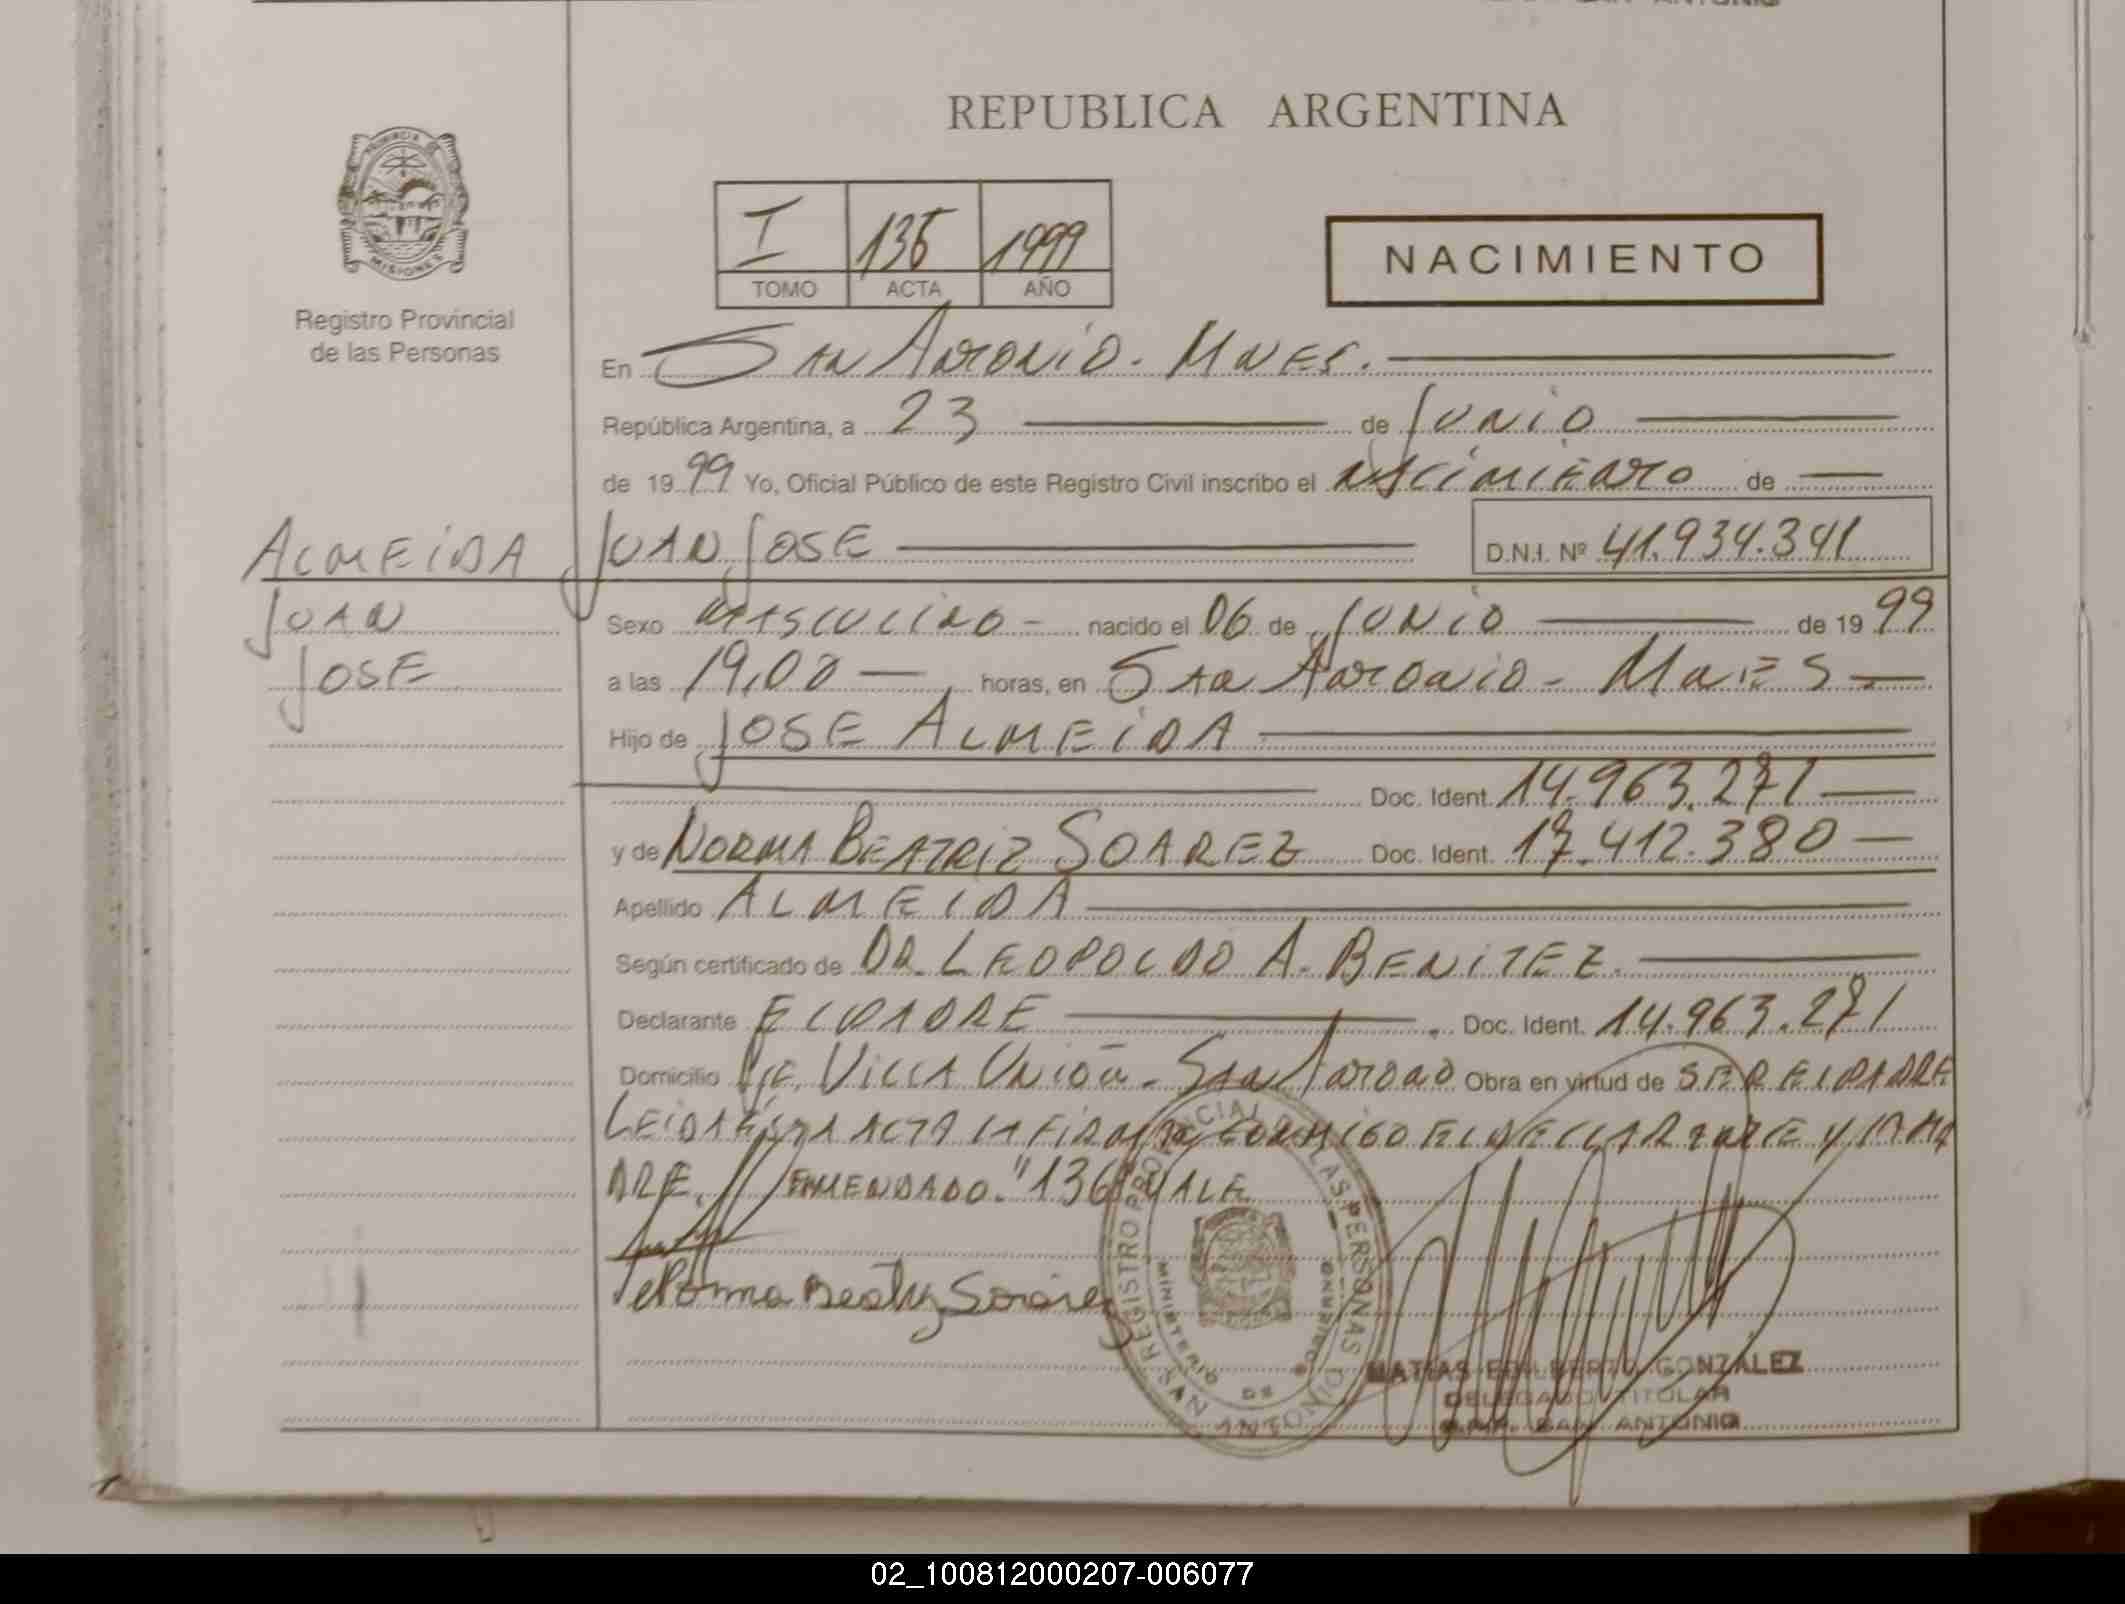 REPUBLICA ARGENTINA
PROVINCIA DE MISIONES
Registro Provincial
de las Personas
I 136 1999
TOMO ACTA AÑO
NACIMIENTO
En San Antonio - Mnes.
República Argentina, a 23 de Junio
de 1999 Yo, Oficial Público de este Registro Civil inscribo el nacimiento de
ALMEIDA JUAN JOSE D.N.I. Nº 41.934.341
JUAN
JOSE
Sexo masculino - nacido el 06 de Junio de 1999
a las 19,00 horas, en San Antonio - Mnes
Hijo de JOSE ALMEIDA
Doc. Ident. 14.963.271
y de NORMA BEATRIZ SOAREZ Doc. Ident. 17.412.380
Apellido ALMEIDA
Según certificado de DR. LEOPOLDO A. BENITEZ.
Declarante EL PADRE. Doc. Ident. 14.963.271
Domicilio Pje. Villa Unión - San Antonio Obra en virtud de SER EL PADRE
LEIDA ESTA ACTA LA FIRMAN CONMIGO EL DECLARANTE Y LA MA
DRE. ENMENDADO. "136" VALE
Norma Beatriz Soarez
REGISTRO PROVINCIAL DE LAS PERSONAS
MINISTERIO DE GOBIERNO
SAN ANTONIO
MATIAS EDILBERTO GONZALEZ
DELEGADO TITULAR
R.P.P. SAN ANTONIO
02_100812000207-006077